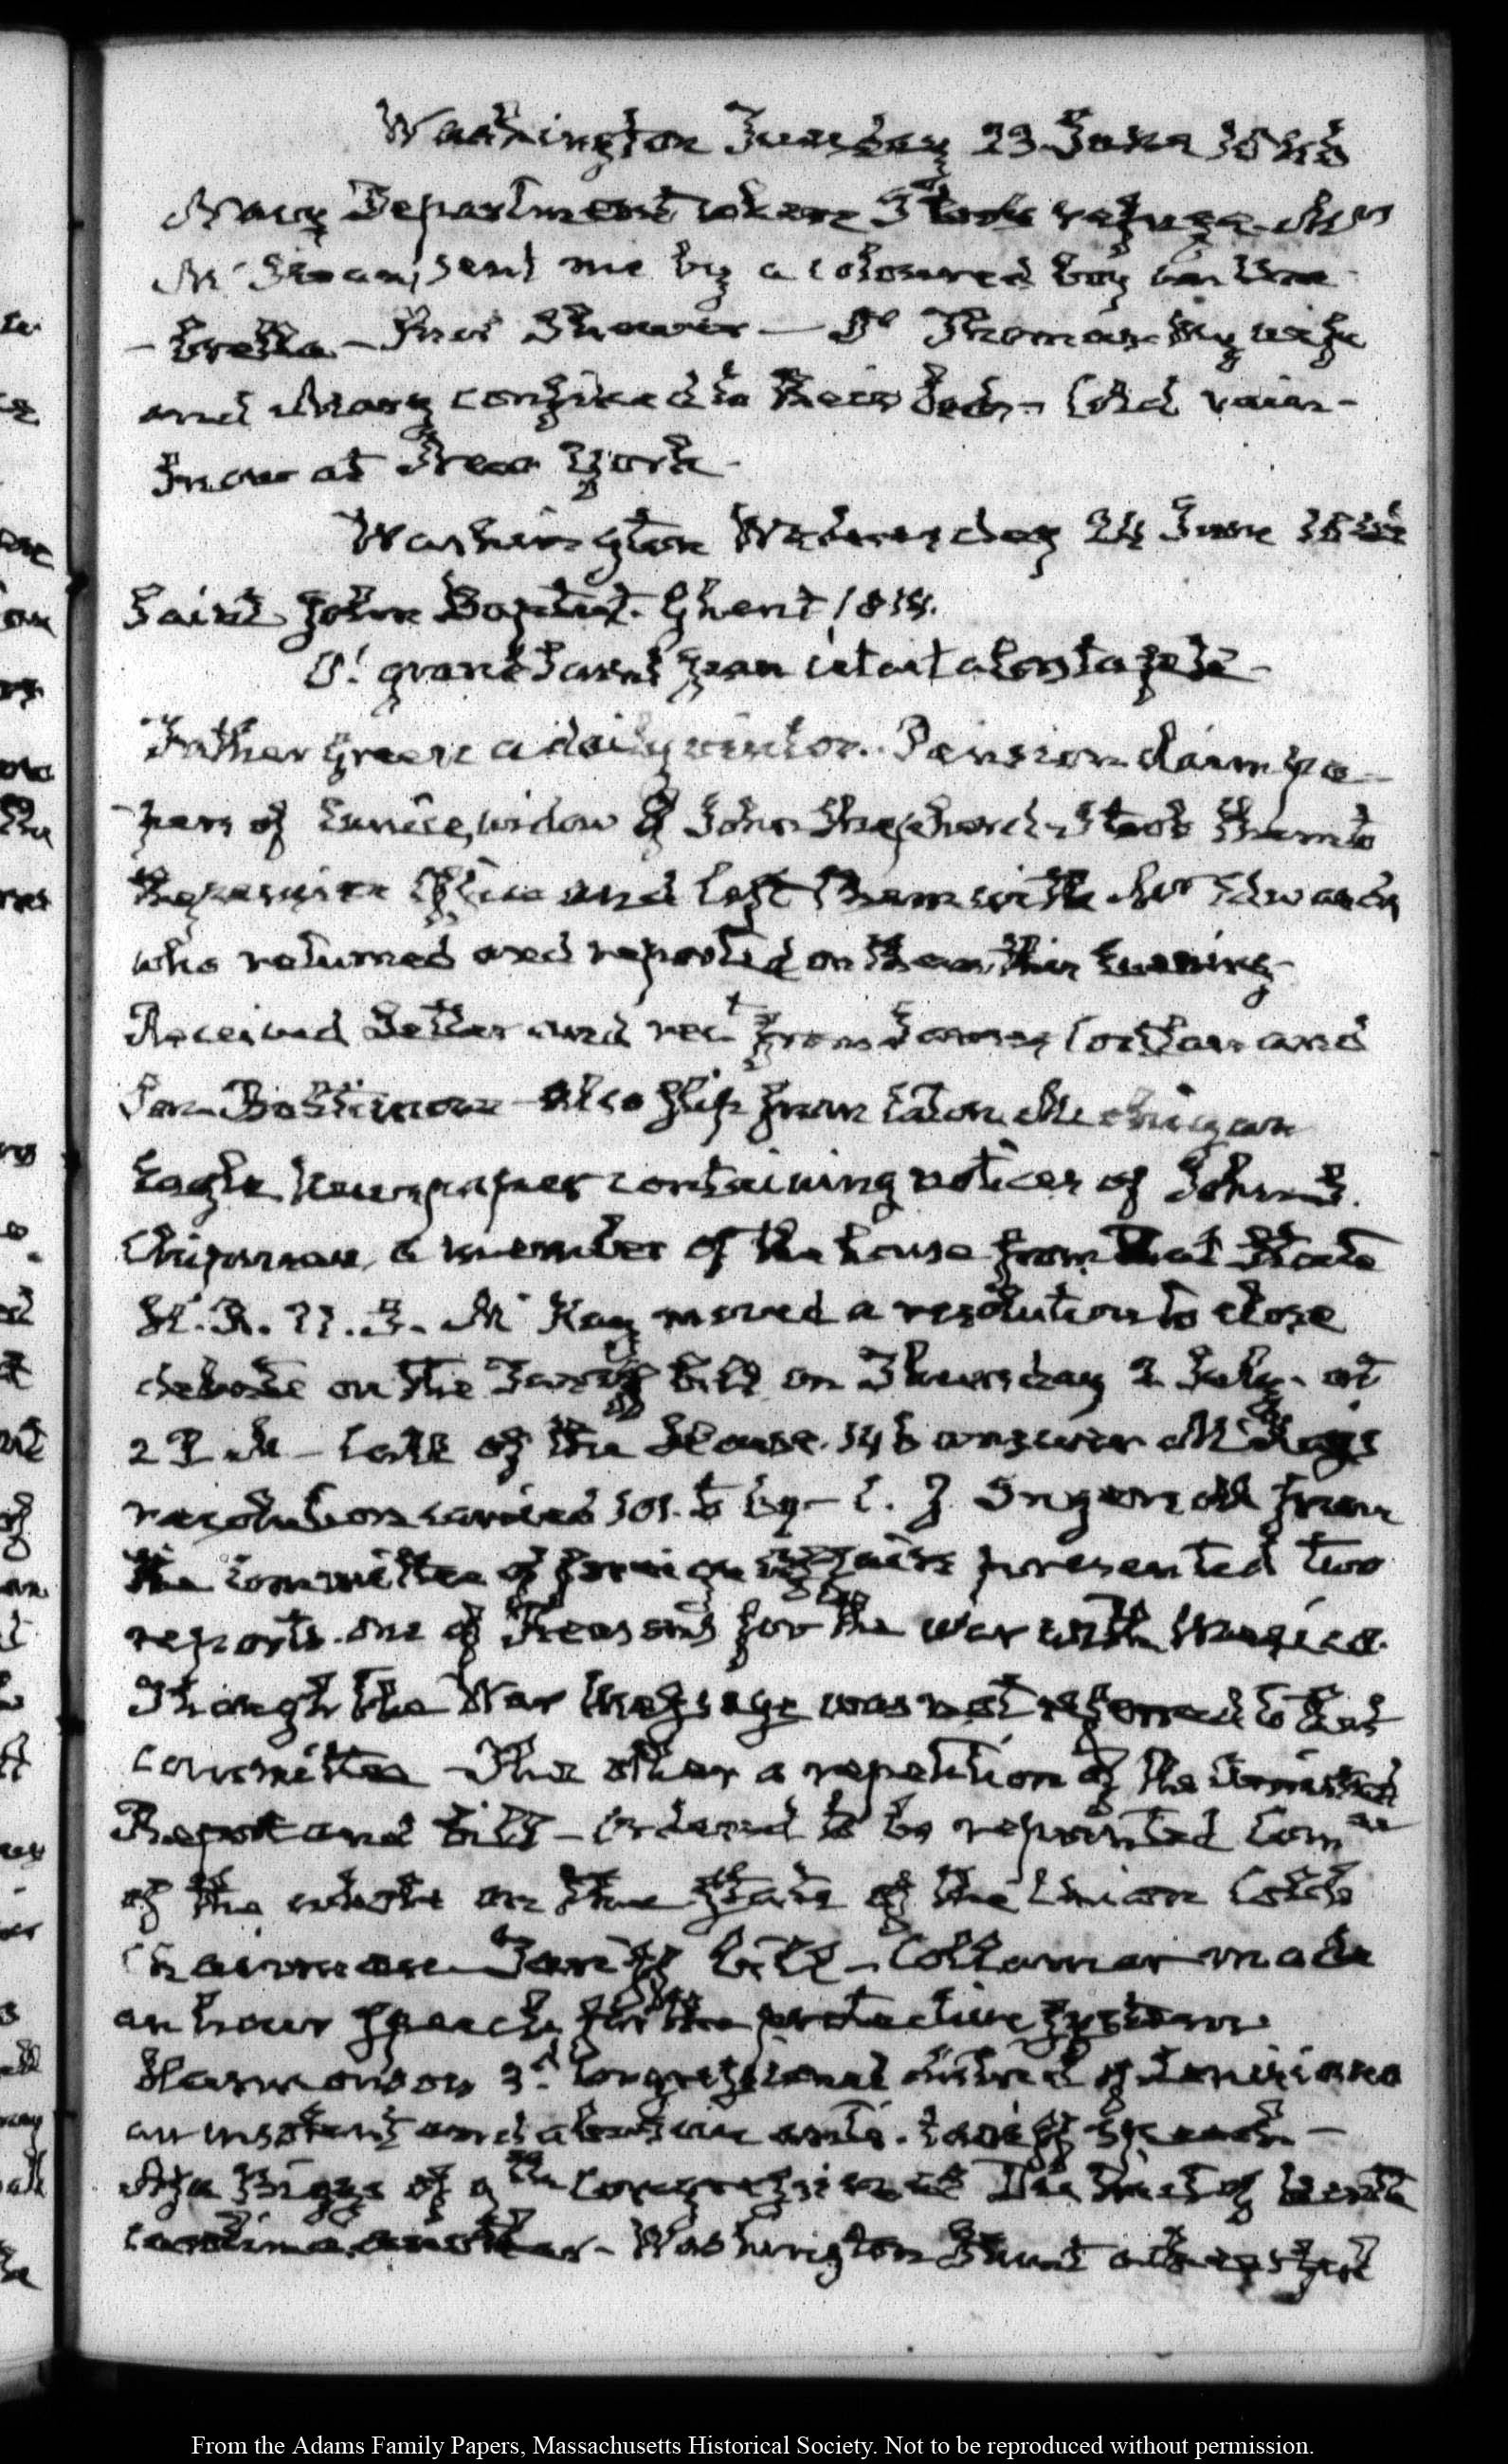 Washington Tuesday 23 June 1846
Navy Department where I took refuge. Mrs
McLean, sent me by a coloured boy an Um
-brella - Shower - Dr Thomas My wife
and Mary confined to their beds - Cold rain -
Snow at New York -
Washington Wednesday 24 June 1846
Saint John Baptist. Ghent 1814.
O! grand Saint Jean c'étoit alors ta fête -
Father Green a daily visitor. Pension claim pa-
pers of Eunice, widow of John Shepherd - I took them to
the pension Office and left them with Mr Edwards
who returned and reported on them this Evening -
Received Letter and rect from James Cortlan and
Son Baltimore - also slip from Eaton Michigan
Eagle Newspaper containing notices of John S.
Chipman, a member of the house from that State
H.R. U.S. McKay moved a resolution to close
debate on the Tariff bill on Thursday 2 July at
2 P.M - Call of the House. 146 answer McKay's
resolution carried 101. to 69 - C. J. Ingersoll from
the committee of foreign affairs presented two
reports. one of Reasons for the war with Mexico.
Though the War Message was not referred to that
committee - The other a repetition of the
Report and bill - Ordered to be reprinted Comee
of the whole on the state of the Union Cobb
Chairman - Tariff bill - Collamer made
an hour speech for the protective system
Harmanson 3d Congressional district of Louisiana
an insolent and abusive anti-tariff speech -
Asa Biggs of 9th Congressional District of North
Carolina another - Washington Hunt